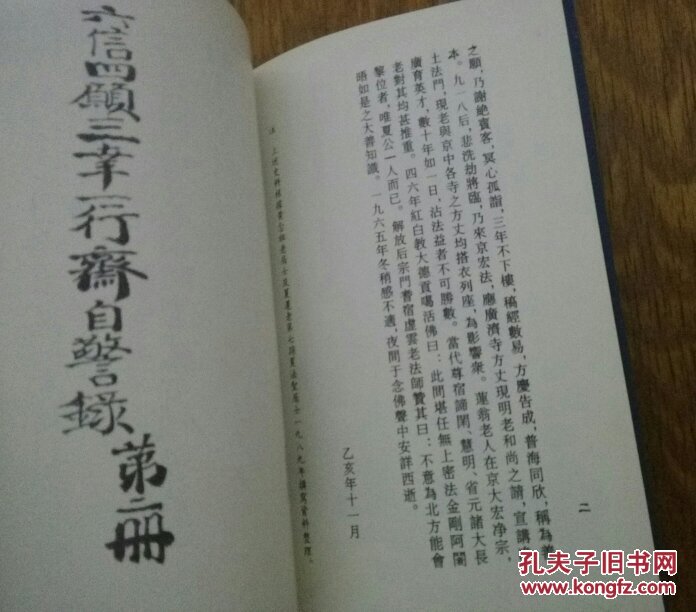 之願，乃謝絶賓客，冥心孤詣，三年不下樓，稿經數易，方慶告成，普海同欣，稱為善
本。九一八后，悲洗劫將臨，乃來京宏法，應廣濟寺方丈現明老和尚之請，宣講
土法門，現老與京中各寺之方丈均搭衣列座，為影響衆。蓮翁老人在京大宏净宗，
廣育英才，數十年如一日，沾法益者不可勝數。當代尊宿諦閑、慧明、省元諸大長
老對其均甚推重。四六年紅白教大德貢噶活佛曰：此間堪任無上密法金剛阿闍
黎位者，唯夏公一人而已。解放后宗門耆宿虛雲老法師贊其曰：不意為北方能會
晤如是之大善知識。一九六五年冬稍感不適，夜間于念佛聲中安詳西逝。
乙亥年十一月
注 上述史料根據黄念祖老居士及夏蓮老第七歸夏法聖居士一九八九年撰寫資料整理。
二
六信四願三幸一行齋自警錄 第二册
孔夫子旧书网
www.kongfz.com